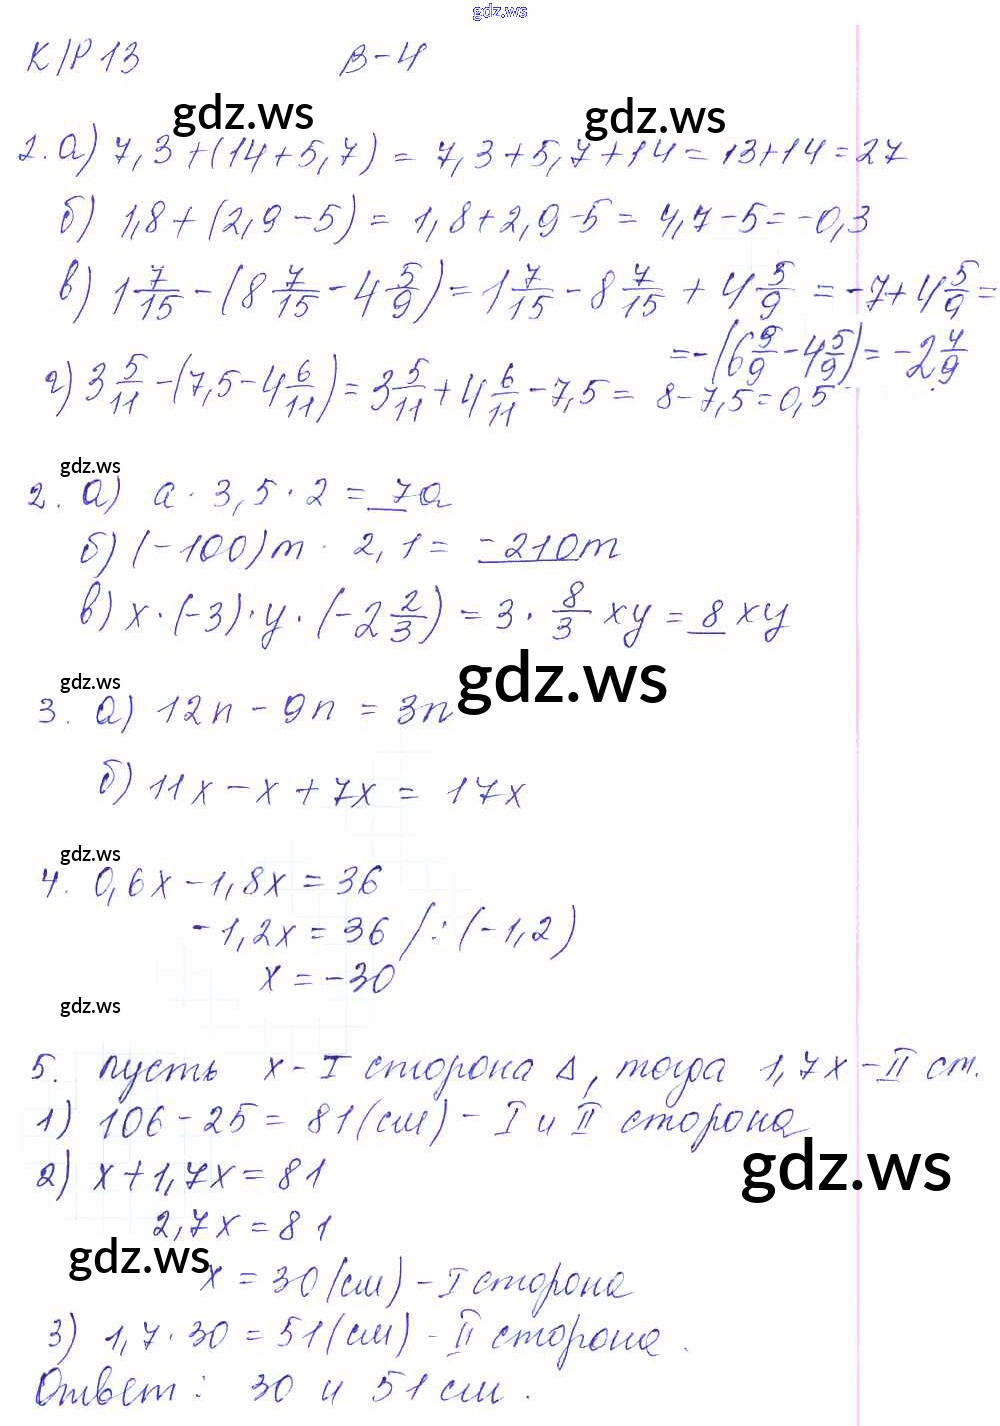 gdz.ws
К/Р 13 В-4
gdz.ws gdz.ws
1. а) 7,3+(14+5,7) = 7,3+5,7+14 = 13+14 = 27
б) 1,8+(2,9-5) = 1,8+2,9-5 = 4,7-5 = -0,3
в) 1 7/15 - (8 7/15 - 4 5/9) = 1 7/15 - 8 7/15 + 4 5/9 = -7+4 5/9 =
= -(6 9/9 - 4 5/9) = -2 4/9
г) 3 5/11 - (7,5 - 4 6/11) = 3 5/11 + 4 6/11 - 7,5 = 8-7,5 = 0,5
gdz.ws
2. а) a · 3,5 · 2 = 7a
б) (-100)m · 2,1 = -210m
в) x · (-3) · y · (-2 2/3) = 3 · 8/3 xy = 8 xy
gdz.ws gdz.ws
3. а) 12n - 9n = 3n
б) 11x - x + 7x = 17x
gdz.ws
4. 0,6x - 1,8x = 36
-1,2x = 36 /:(-1,2)
x = -30
gdz.ws
5. пусть x - I сторона Δ, тогда 1,7x - II ст.
1) 106 - 25 = 81 (см) - I и II сторона
gdz.ws
2) x + 1,7x = 81
2,7x = 81
gdz.ws
x = 30 (см) - I сторона
3) 1,7 · 30 = 51 (см) - II сторона.
Ответ: 30 и 51 см.